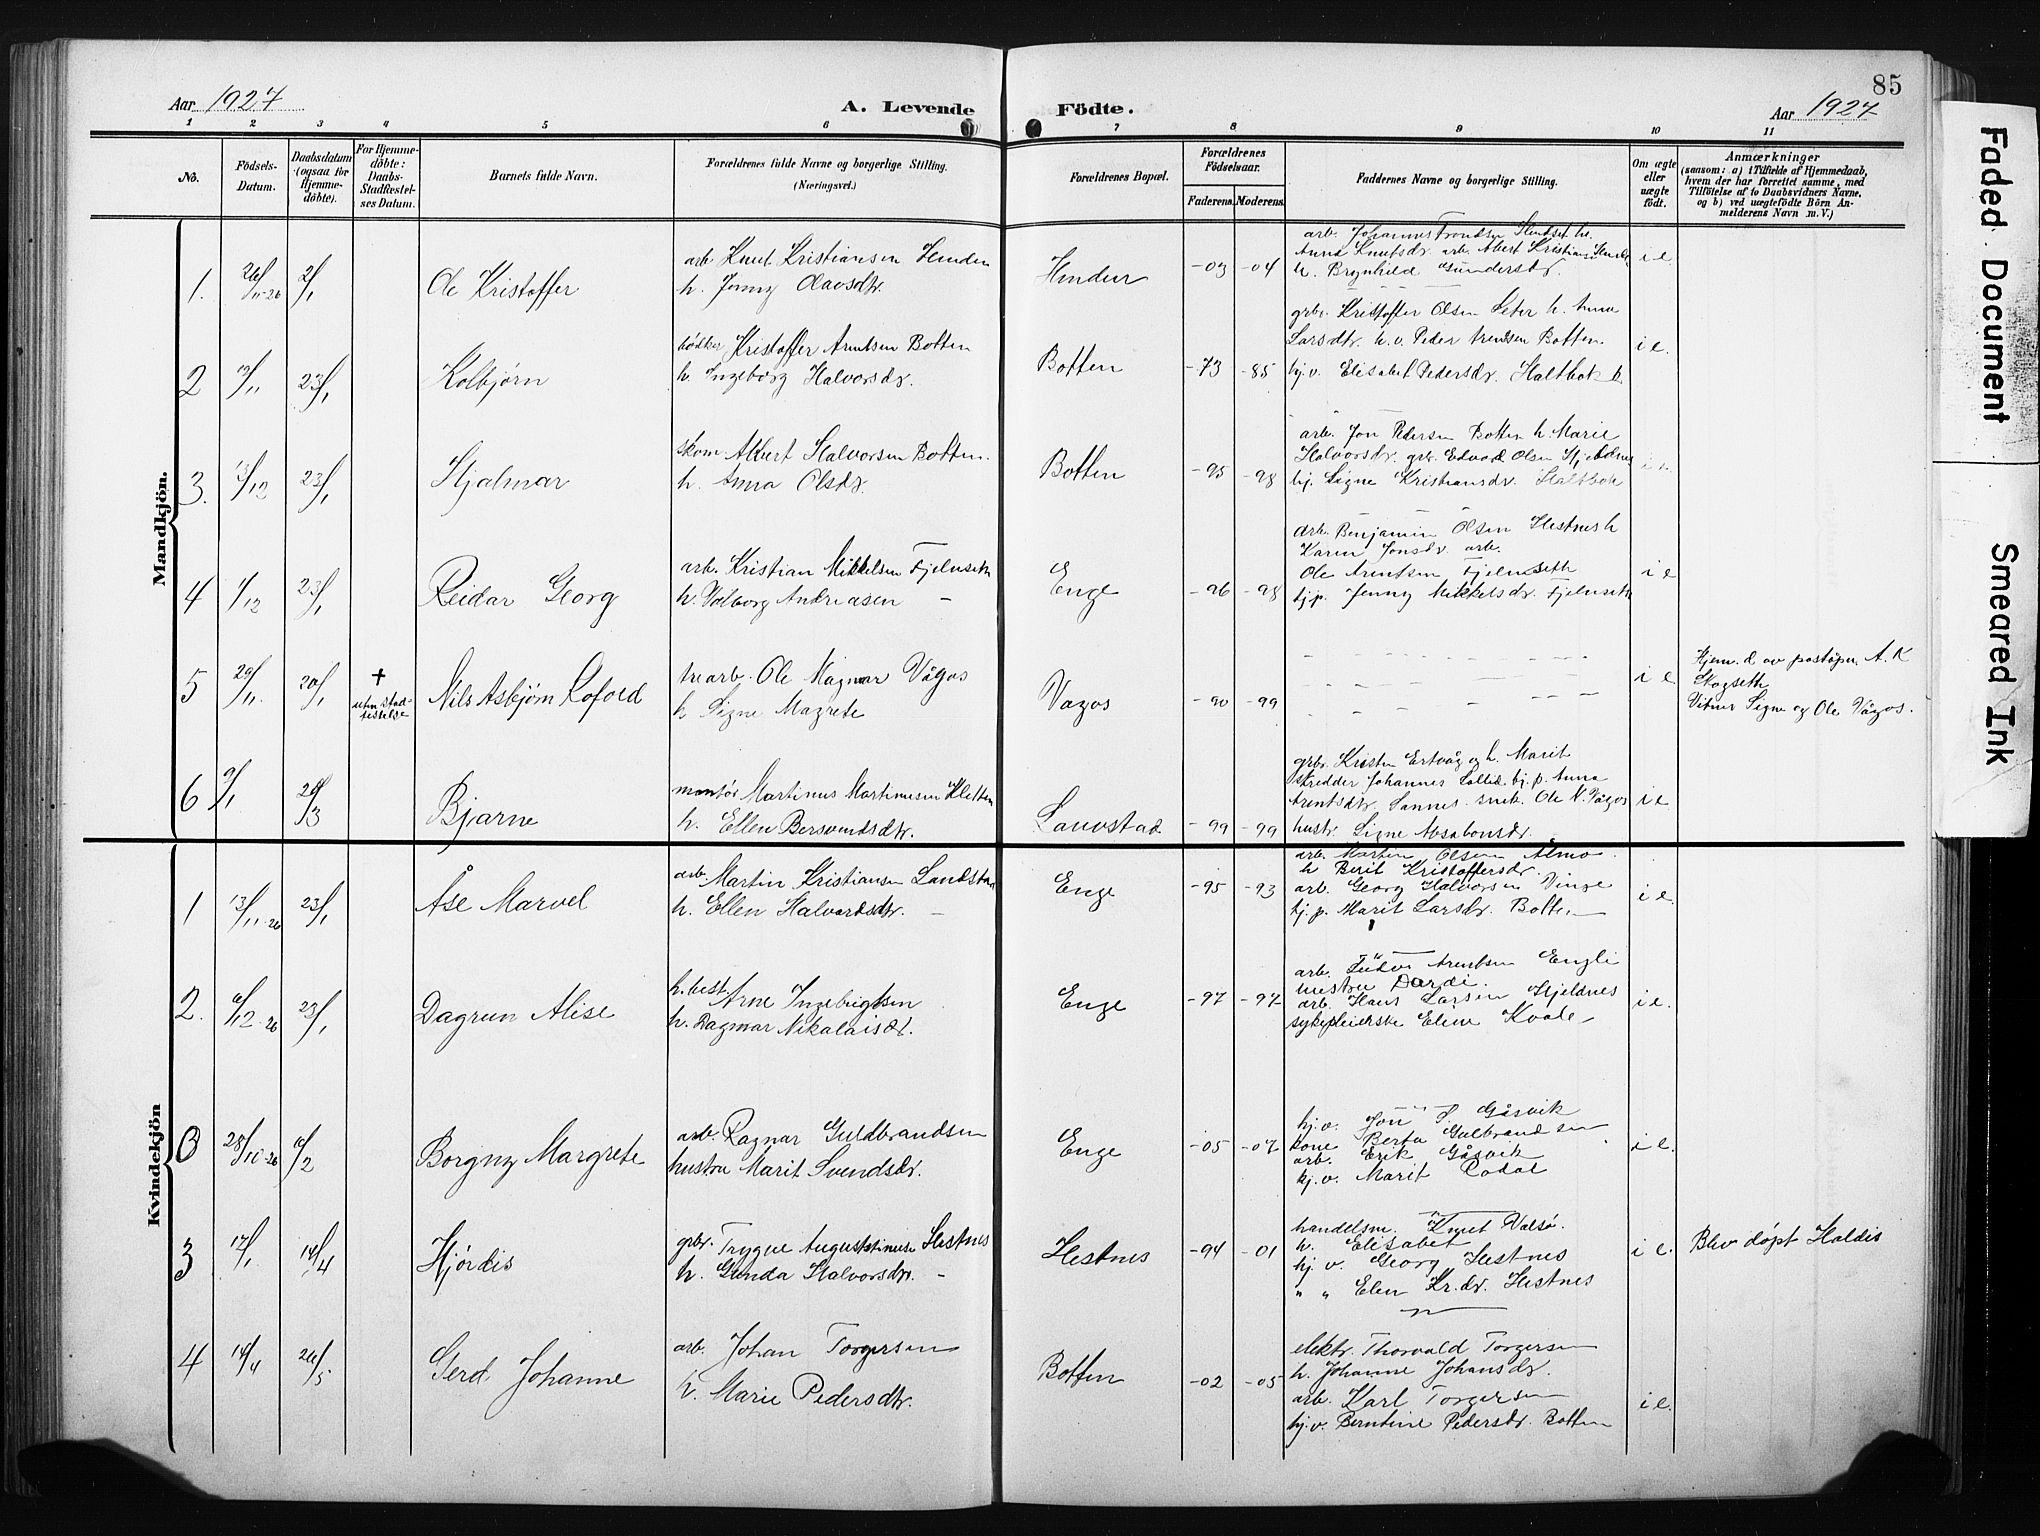 85
Aar 1927
A. Levende
Födte.
Aar 1927
1 2 3 4 5 6 7 8 9 10 11
No.
Födsels-
Datum.
Daabsdatum
(ogsaa for
Hjemme-
døbte).
For Hjemme-
døbte:
Daabs-
Stadfæstel-
ses Datum.
Barnets fulde Navn.
Forældrenes fulde Navne og borgerlige Stilling.
(Næringsvei.)
Forældrenes Bopæl.
Forældrenes
Födselsaar.
Faderens. Moderens.
Faddernes Navne og borgerlige Stilling.
Om ægte
eller
uægte
födt.
Anmærkninger
(saasom: a) i Tilfælde af Hjemmedaab,
hvem der har forrettet samme, med
Tilföielse af to Daabsvidners Navne,
og b) ved uægtefödte Börn An-
melderens Navn m. V.)
Mandkjön.
1. 26/11-26 2/1
Ole Kristoffer
arb. Knut Kristiansen Henden
h. Jenny Olavsdtr.
-03 -04
arb. Johannes Trondsen
Anna Knutsdr. arb. Albert Kristiansen
h. Brynhild Gundersdr.
i e.
2 13/11 23/1
Kolbjørn
bødker Kristoffer Arntsen Botten
h. Ingeborg Halvorsdr.
Botten
-73 -85
grbr. Kristoffer Olsen Seter h. Anna
Larsdtr. h. v. Peder Arentsen Botten.
hj. v. Elisabet Pedersdr. Haltbak
i e.
3. 13/12 23/1
Hjalmar
skom. Albert Halvorsen Botten.
h. Anna Olsdr.
Botten
-95 -98
arb. Jon Pedersen Botten h. Marie
Halvorsdr. grbr. Edvard Olsen Hjeldnes
hj. Signe Kristiansdr. Haltbak
4 1/12 23/1
Reidar Georg
arb. Kristian Mikkelsen Fjelnseth
h. Valborg Andreasen -
Enge
-96 -98
arb. Benjamin Olsen Hestnes h
Karen Jonsdr. arb.
Ole Arentsen Fjelnseth
hj. p. Jenny Mikkelsdr. Fjelnseth
i e
5 29/11. 20/1
+
uten stad-
festelse
Nils Asbjørn Lofold
trearb. Ole Magnar Vågos
h Signe Magrete
Vagos
-90 -99
i e
Hjem. d. av postøpn. A. K
Skogseth
Vitner Signe og Ole Vågos.
6 9/1 20/3
Bjarne
montør Martinus Martinusen Kletten
h. Ellen Bersvendsdtr.
Lauvstad
-99 -99
grbr. Kristen Ertvåg og h. Marit
skredder Johannes hj. p. Anna
Arentsdtr. Sannes. snek. Ole N. Vågos
hustr. Signe Absalonsdr.
i e
Kvindekjön
1 13/11-26 23/1
Åse Marvel
arb. Martin Kristiansen Landstad
h. Ellen Halvordsdtr. -
Enge
-95 -93
arb. Martin Olsen Almo.
h Berit Kristoffersdr.
arb. Georg Halvorsen Vinge
hj. p. Marit Larsdr. Botten
i e.
2. 6/12-26 23/1
Dagrun Alise
h.best. Arne Ingebrigtsen
h. Dagmar Nikolaisdt.
Enge
-97 -97
arb. Arentsen Engli
hustru Dordi.
arb. Hans Larsen Hjeldnes
sykepleierske Eline Kvale
i e.
0 28/10-26 10/2
Borgny Margrete
arb. Ragnar Guldbrandsen
hustru Marit Svendsdr.
Enge
-05 -07
hj. v. Jon S. Gåsvik
kone Berta Gulbrandsen
arb. Erik Gåsvik
hj. v. Marit Rodal
i e.
3 17/1 14/4
Hjørdis
grbr. Trygve Augustinusen Hestnes
h. Gunda Halvorsdr. -
Hestnes
-94 -01
handelsm. Knut Valsø.
h. Elisabet
hj. v. Georg Hestnes
" " Elen Kr.dr. Hestnes
i e.
Blev døpt Haldis
4 14/4 26/5
Gerd Johanne
arb. Johan Torgersen
h. Marie Pedersdtr.
Botten
-02 -05
elektr. Thorvald Torgersen
h. Johanne Johansdr.
arb. Karl Torgersen
hj. v. Berntine Pedersdr. Botten
i e.
Faded Document
Smeared Ink